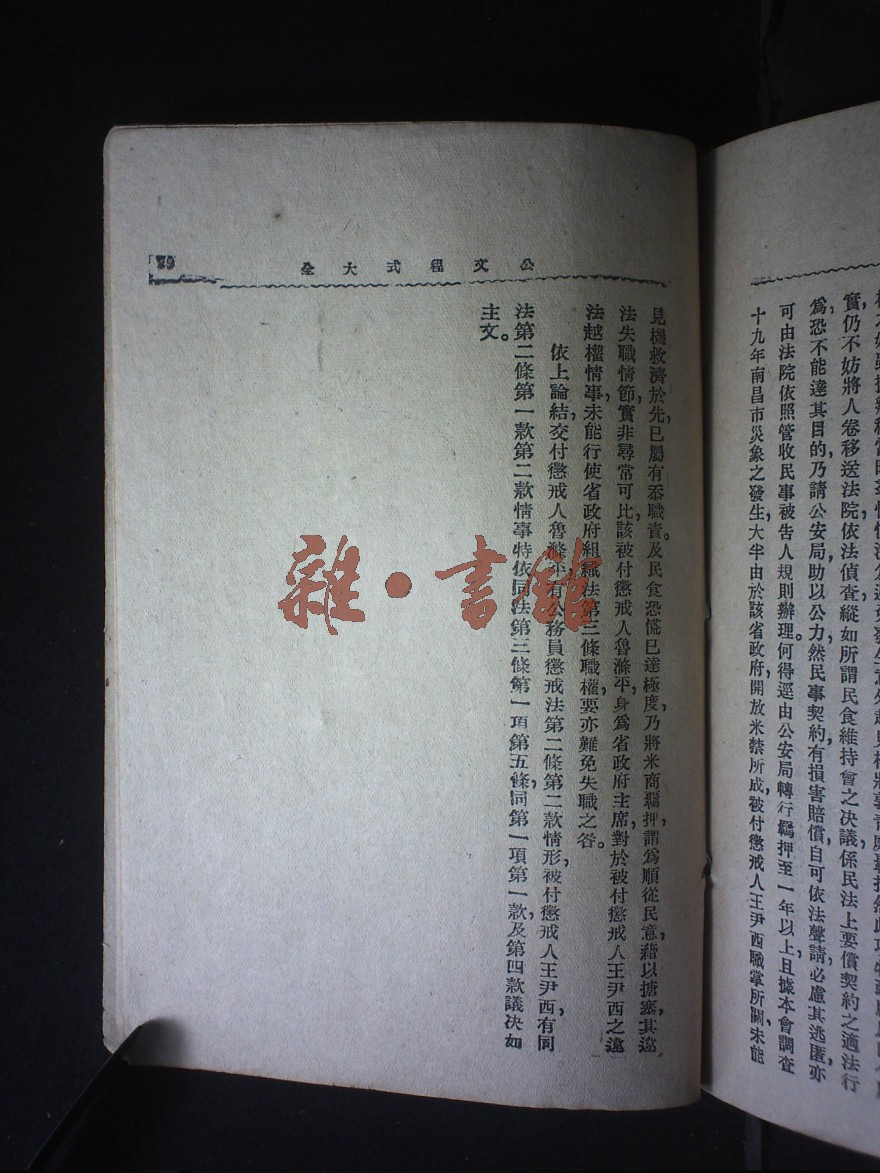 實仍不妨將人卷移送法院依法偵查縱如所謂民食維持會之決議係民法上要償契約之適法行
爲恐不能達其目的乃請公安局助以公力然民事契約有損害賠償自可依法聲請必慮其逃匿亦
可由法院依照管收民事被告人規則辦理。何得逕由公安局轉行羈押至一年以上且據本會調查
十九年南昌市災象之發生大半由於該省政府開放米禁所成被付懲戒人王尹西職掌所關未能
公文程式大全
79
見機救濟於先已屬有忝職責。及民食恐慌已達極度乃將米商羈押謂爲順從民意藉以搪塞其違
法失職情節實非尋常可比該被付懲戒人魯滌平身爲省政府主席對於被付懲戒人王尹西之違
法越權情事未能行使省政府組織法第三條職權要亦難免失職之咎。
依上論結交付懲戒人魯滌平有公務員懲戒法第二條第二款情形被付懲戒人王尹西有同
法第二條第一款第二款情事特依同法第三條第一項第五條同第一項第一款及第四款議決如
主文。
雜·書館